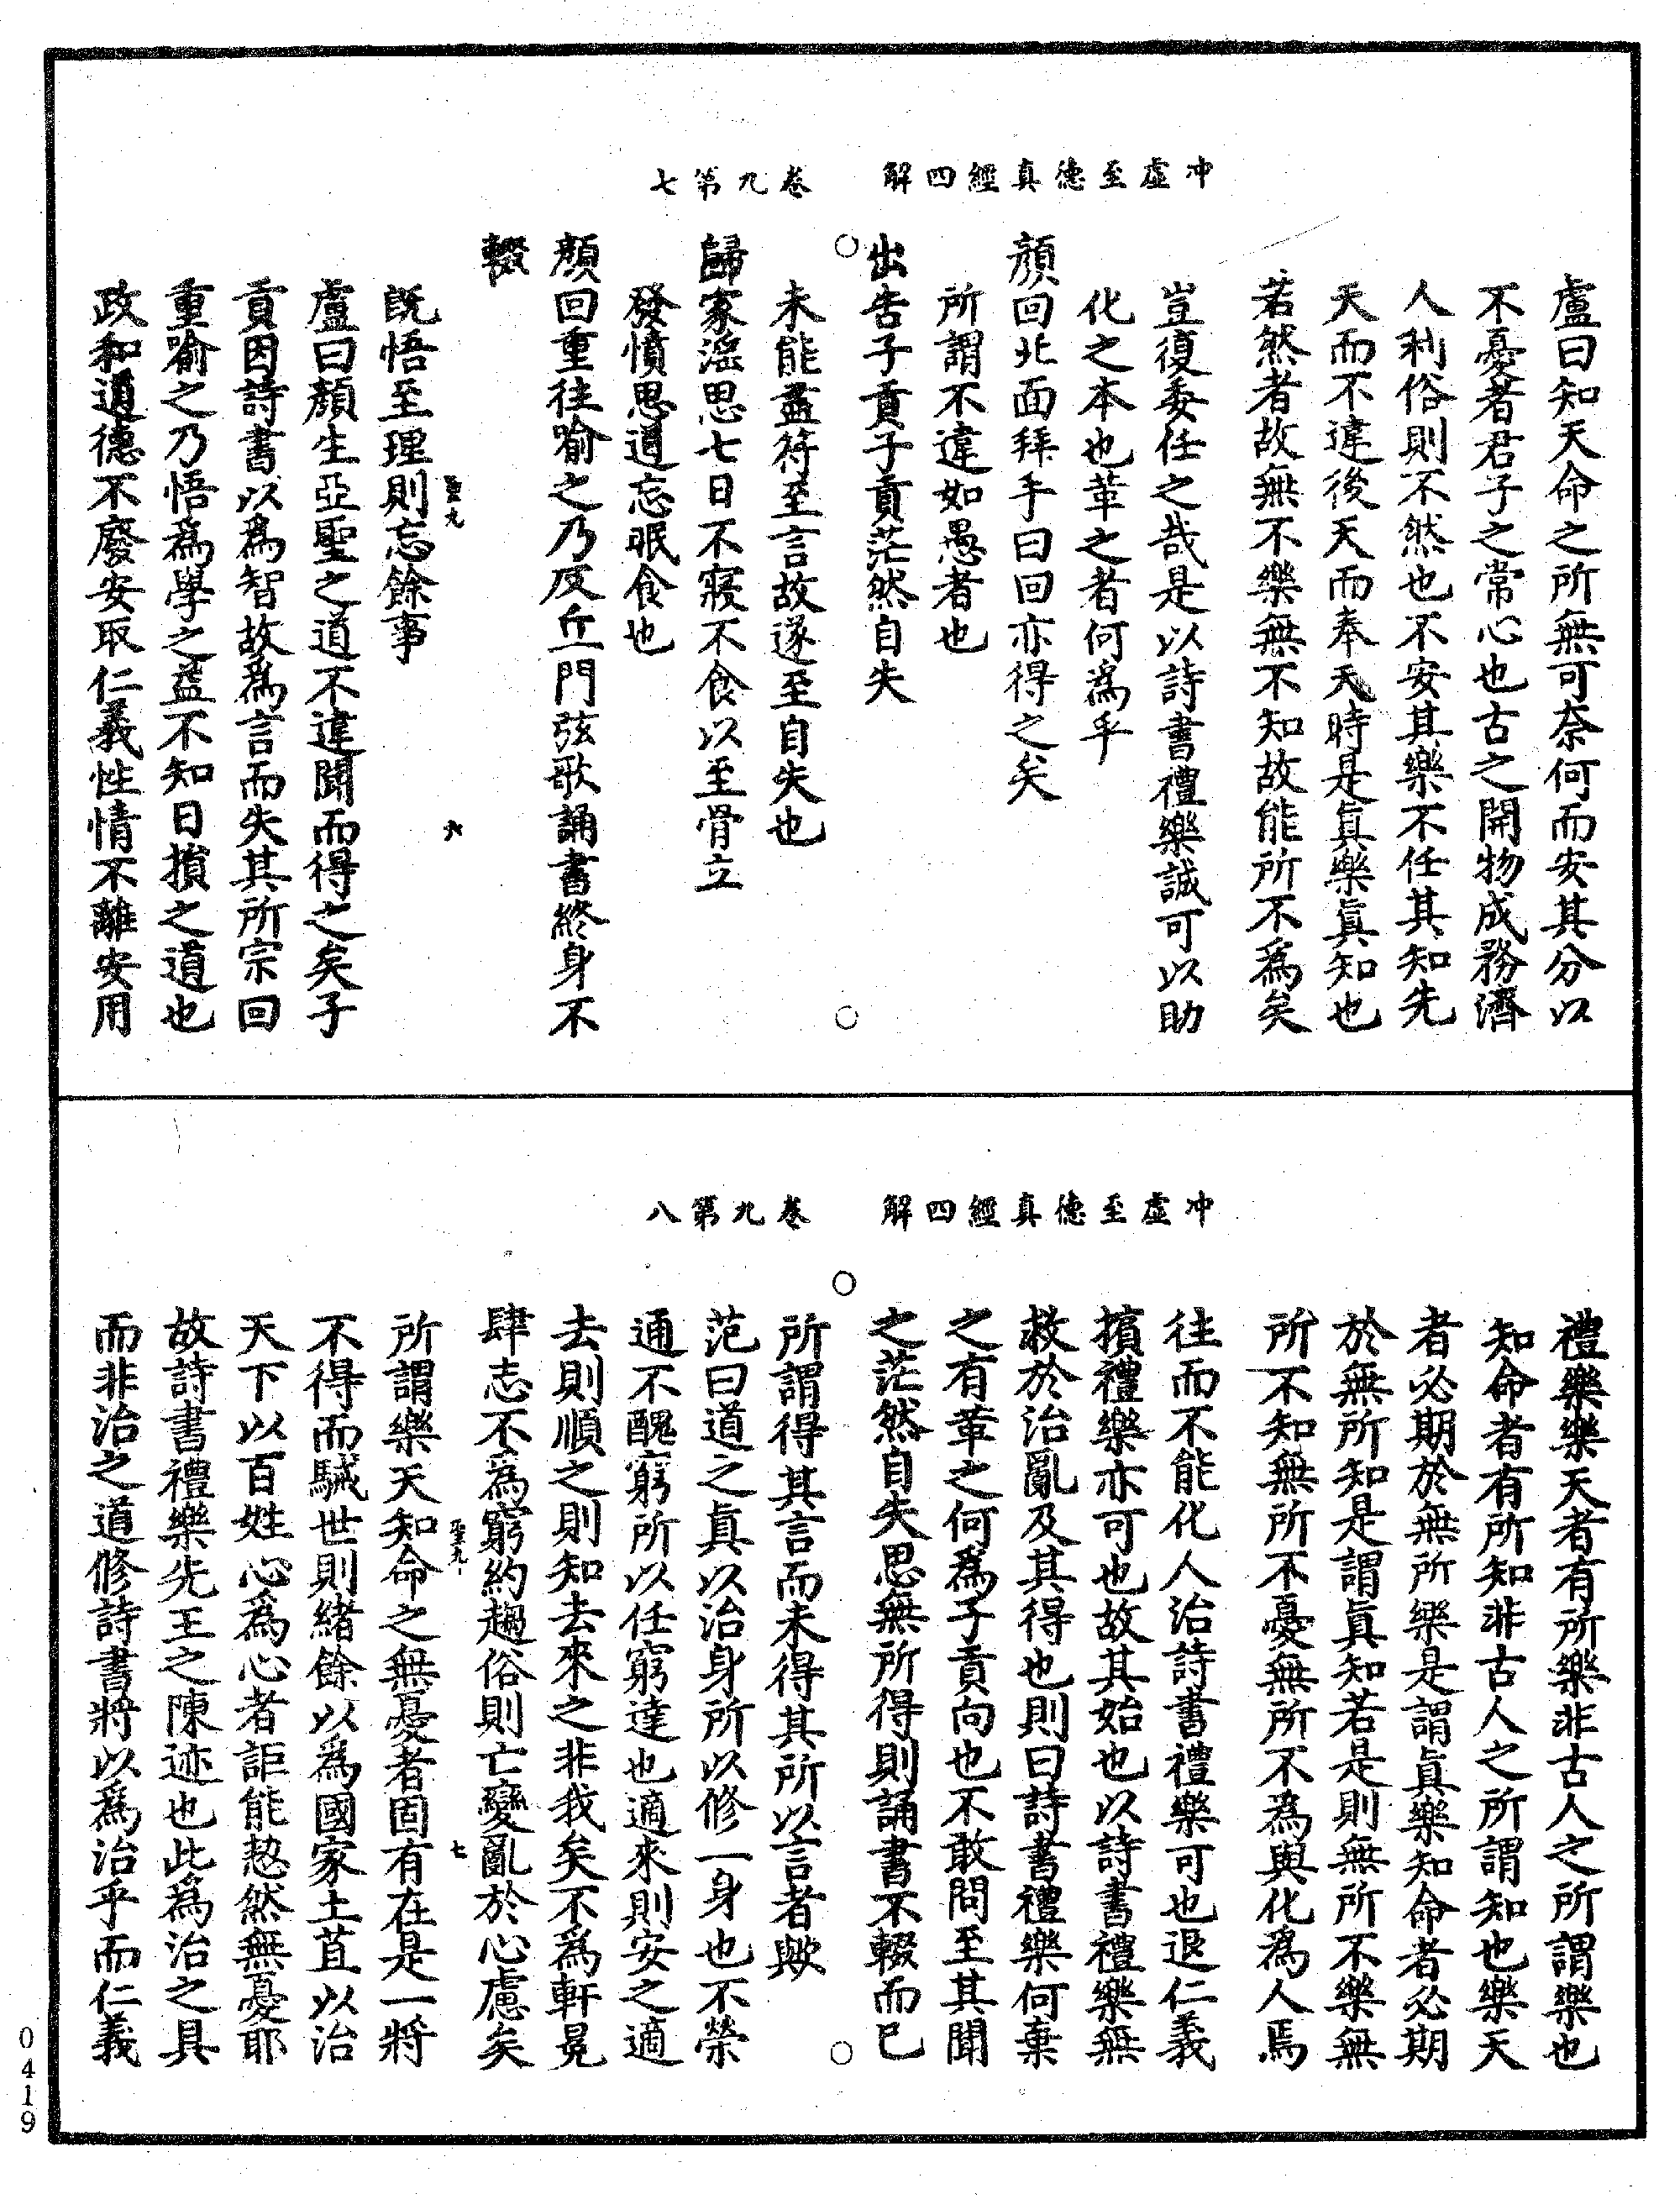 冲虛至德真經四解　卷九第七
盧曰知天命之所無可奈何而安其分以
不憂者君子之常心也古之開物成務濟
人利俗則不然也不安其樂不任其知先
天而不違後天而奉天時是真樂真知也
若然者故無不樂無不知故能所不爲矣
豈復委任之哉是以詩書禮樂誠可以助
化之本也革之者何爲乎
顏回北面拜手曰回亦得之矣
所謂不違如愚者也
出告子貢子貢茫然自失
未能盡符至言故遂至自失也
歸家淫思七日不寢不食以至骨立
發憤思道忘眠食也
顏回重往喻之乃反丘門弦歌誦書終身不
輟
既悟至理則忘餘事
聖九　六
盧曰顏生亞聖之道不違聞而得之矣子
貢因詩書以爲智故爲言而失其所宗回
重喻之乃悟爲學之益不知日損之道也
政和道德不廢安取仁義性情不離安用
冲虛至德真經四解　卷九第八
禮樂樂天者有所樂非古人之所謂樂也
知命者有所知非古人之所謂知也樂天
者必期於無所樂是謂真樂知命者必期
於無所知是謂真知若是則無所不樂無
所不知無所不憂無所不為與化爲人焉
往而不能化人治詩書禮樂可也退仁義
擯禮樂亦可也故其始也以詩書禮樂無
救於治亂及其得也則曰詩書禮樂何棄
之有革之何爲子貢向也不敢問至其聞
之茫然自失思無所得則誦書不輟而已
所謂得其言而未得其所以言者歟
范曰道之真以治身所以修一身也不榮
通不醜窮所以任窮達也適來則安之適
去則順之則知去來之非我矣不爲軒冕
肆志不爲窮約趨俗則亡變亂於心慮矣
聖九　七
所謂樂天知命之無憂者固有在是一將
不得而駴世則緒餘以爲國家土苴以治
天下以百姓心爲心者詎能恝然無憂耶
故詩書禮樂先王之陳迹也此為治之具
而非治之道修詩書將以爲治乎而仁義
0419